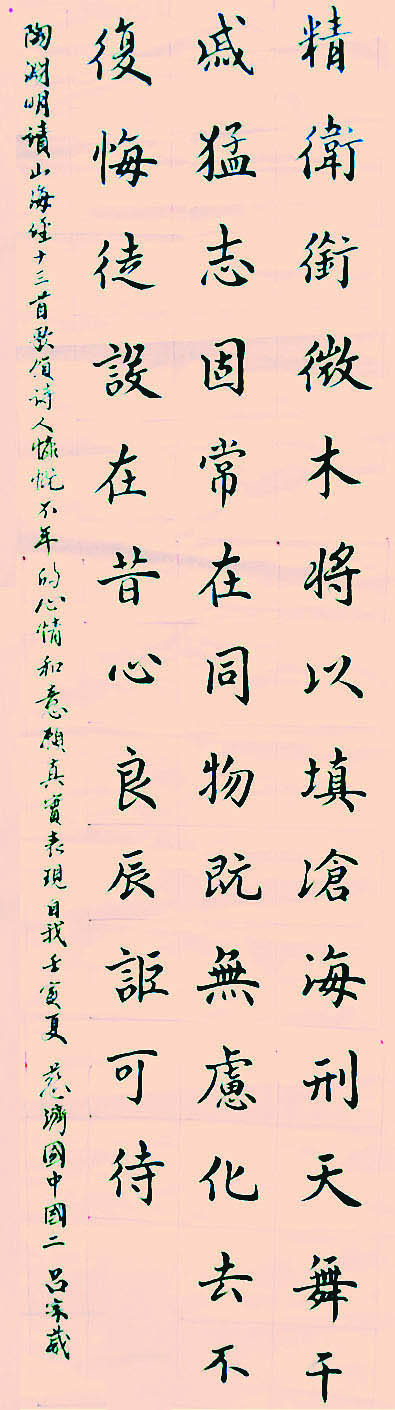 精衛銜微木將以填滄海刑天舞干
戚猛志固常在同物既無慮化去不
復悔徒設在昔心良辰詎可待
陶淵明讀山海經十三首歌頌詩人慷慨不年的心情和意願真實表現自我壬寅夏 慈濟國中國二 呂